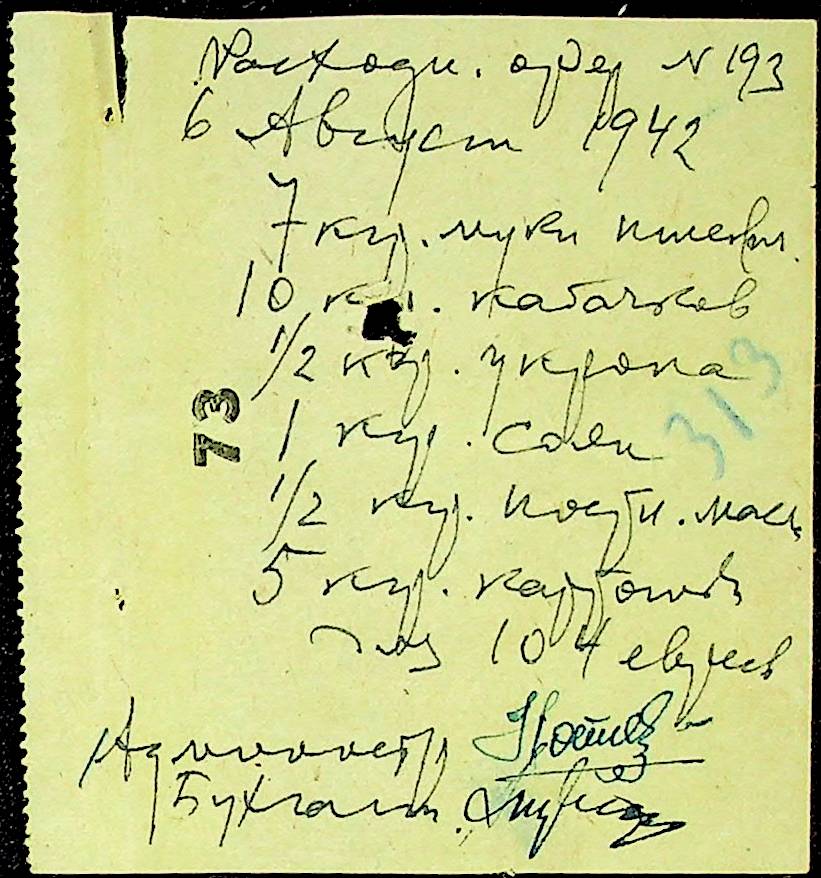 Расходн. ордер N 193
6 Август 1942
7 кгр. муки пшенич.
10 кгр. кабачков
1/2 кгр. укропа
313
73
1 кгр. соли
1/2 кгр. постн. масл
5 кгр. картошки
для 104 евреев
Администр
Бухгалт.